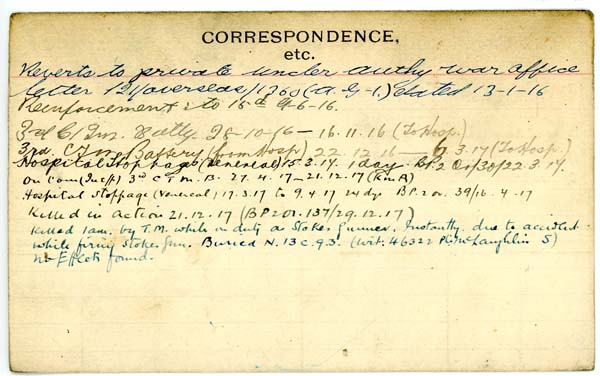 CORRESPONDENCE,
etc.
Reverts to private under authy war office
letter 121/overseas/1360 (A.G-1.) dated 13-1-16
Reinforcements to 16th 9-6-16.
3rd C/Tm. Batty. 28-10-16 — 16.11.16 (To Hosp.)
3rd. C.T.M. Battery (from Hosp) 22.12.16 — 6.3.17 (To Hosp.)
Hospital Stoppage (Venereal) 15.3.17. 1 day. B.P.2 Or/30/22.3.17.
on Com (Inf/s) 3rd C.T.M.B. 27.4.17 — 21.12.17 (K in A)
Hospital Stoppage (Venereal) 17.3.17 to 9.4.17 24 dys B.P.2or. 39/16.4.17
Killed in Action 21.12.17 (B P 2 or. 137/29.12.17)
Killed 1 am. by T.M. while on duty as Stokes Gunner. Instantly. due to accident
while firing Stokes Gun. Buried N.13.c.9.3. (Wit: 46322 Pt. McLaughlin S)
no Effects found.